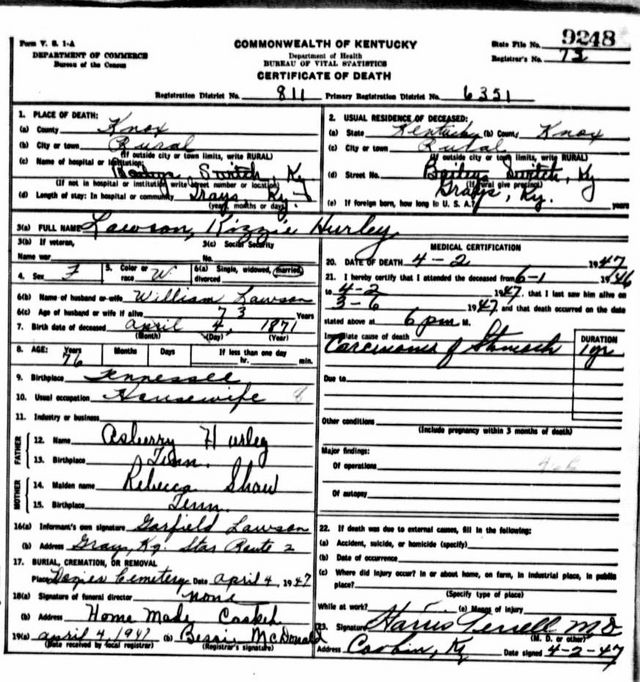 Form V. S. 1-A
DEPARTMENT OF COMMERCE
Bureau of the Census
COMMONWEALTH OF KENTUCKY
Department of Health
BUREAU OF VITAL STATISTICS
CERTIFICATE OF DEATH
State File No. 9248
Registrar's No. 73
Registration District No. 811 Primary Registration District No. 6351
1. PLACE OF DEATH:
(a) County Knox
(b) City or town Rural
(If outside city or town limits, write RURAL)
(c) Name of hospital or institution: Switch, Ky
(If not in hospital or institution, write street number or location)
(d) Length of stay: In hospital or community Grays Ky.
(years, months or days)
2. USUAL RESIDENCE OF DECEASED:
(a) State Kentucky (b) County Knox
(c) City or town Rural
(If outside city or town limits, write RURAL)
(d) Street No. Baileys Switch, Ky
(If rural give precinct)
Grays, Ky.
(e) If foreign born, how long in U. S. A.? years
3(a) FULL NAME Lawson, Kizzie Hurley
3(b) If veteran,
Name war
3(c) Social Security
No.
4. Sex F
5. Color or race W
6(a) Single, widowed, married, divorced
6(b) Name of husband or wife William Lawson
6(c) Age of husband or wife if alive 73 Years
7. Birth date of deceased April 4, 1871
(Month) (Day) (Year)
8. AGE: Years 76 Months Days If less than one day
hr. min.
9. Birthplace Tennessee
10. Usual occupation Housewife 8
11. Industry or business
FATHER
12. Name Asberry Hurley
13. Birthplace Tenn.
MOTHER
14. Maiden name Rebecca Shaw
15. Birthplace Tenn.
16(a) Informant's own signature Garfield Lawson
(b) Address Gray, Ky. Star Route 2
17. BURIAL, CREMATION, OR REMOVAL
Place Cemetery Date April 4, 1947
18(a) Signature of funeral director none
(b) Address Home Made Casket
19(a) April 4, 1947 (b) Bessie McDonald
(Date received by local registrar) (Registrar's signature)
MEDICAL CERTIFICATION
20. DATE OF DEATH 4-2 1947
21. I hereby certify that I attended the deceased from 6-1 1946
to 4-2 1947, that I last saw him alive on
3-6 1947 and that death occurred on the date
stated above at 6 pm M.
Immediate cause of death
Carcinoma of Stomach
DURATION
1 yr
Due to
Other conditions
(Include pregnancy within 3 months of death)
Major findings:
Of operations
Of autopsy
22. If death was due to external causes, fill in the following:
(a) Accident, suicide, or homicide (specify)
(b) Date of occurrence
(c) Where did injury occur? In or about home, on farm, in industrial place, in public
place?
(Specify type of place)
While at work? (e) Means of injury
23. Signature Harris Terrell M.D.
(M. D. or other)
Address Corbin, Ky Date signed 4-2-47